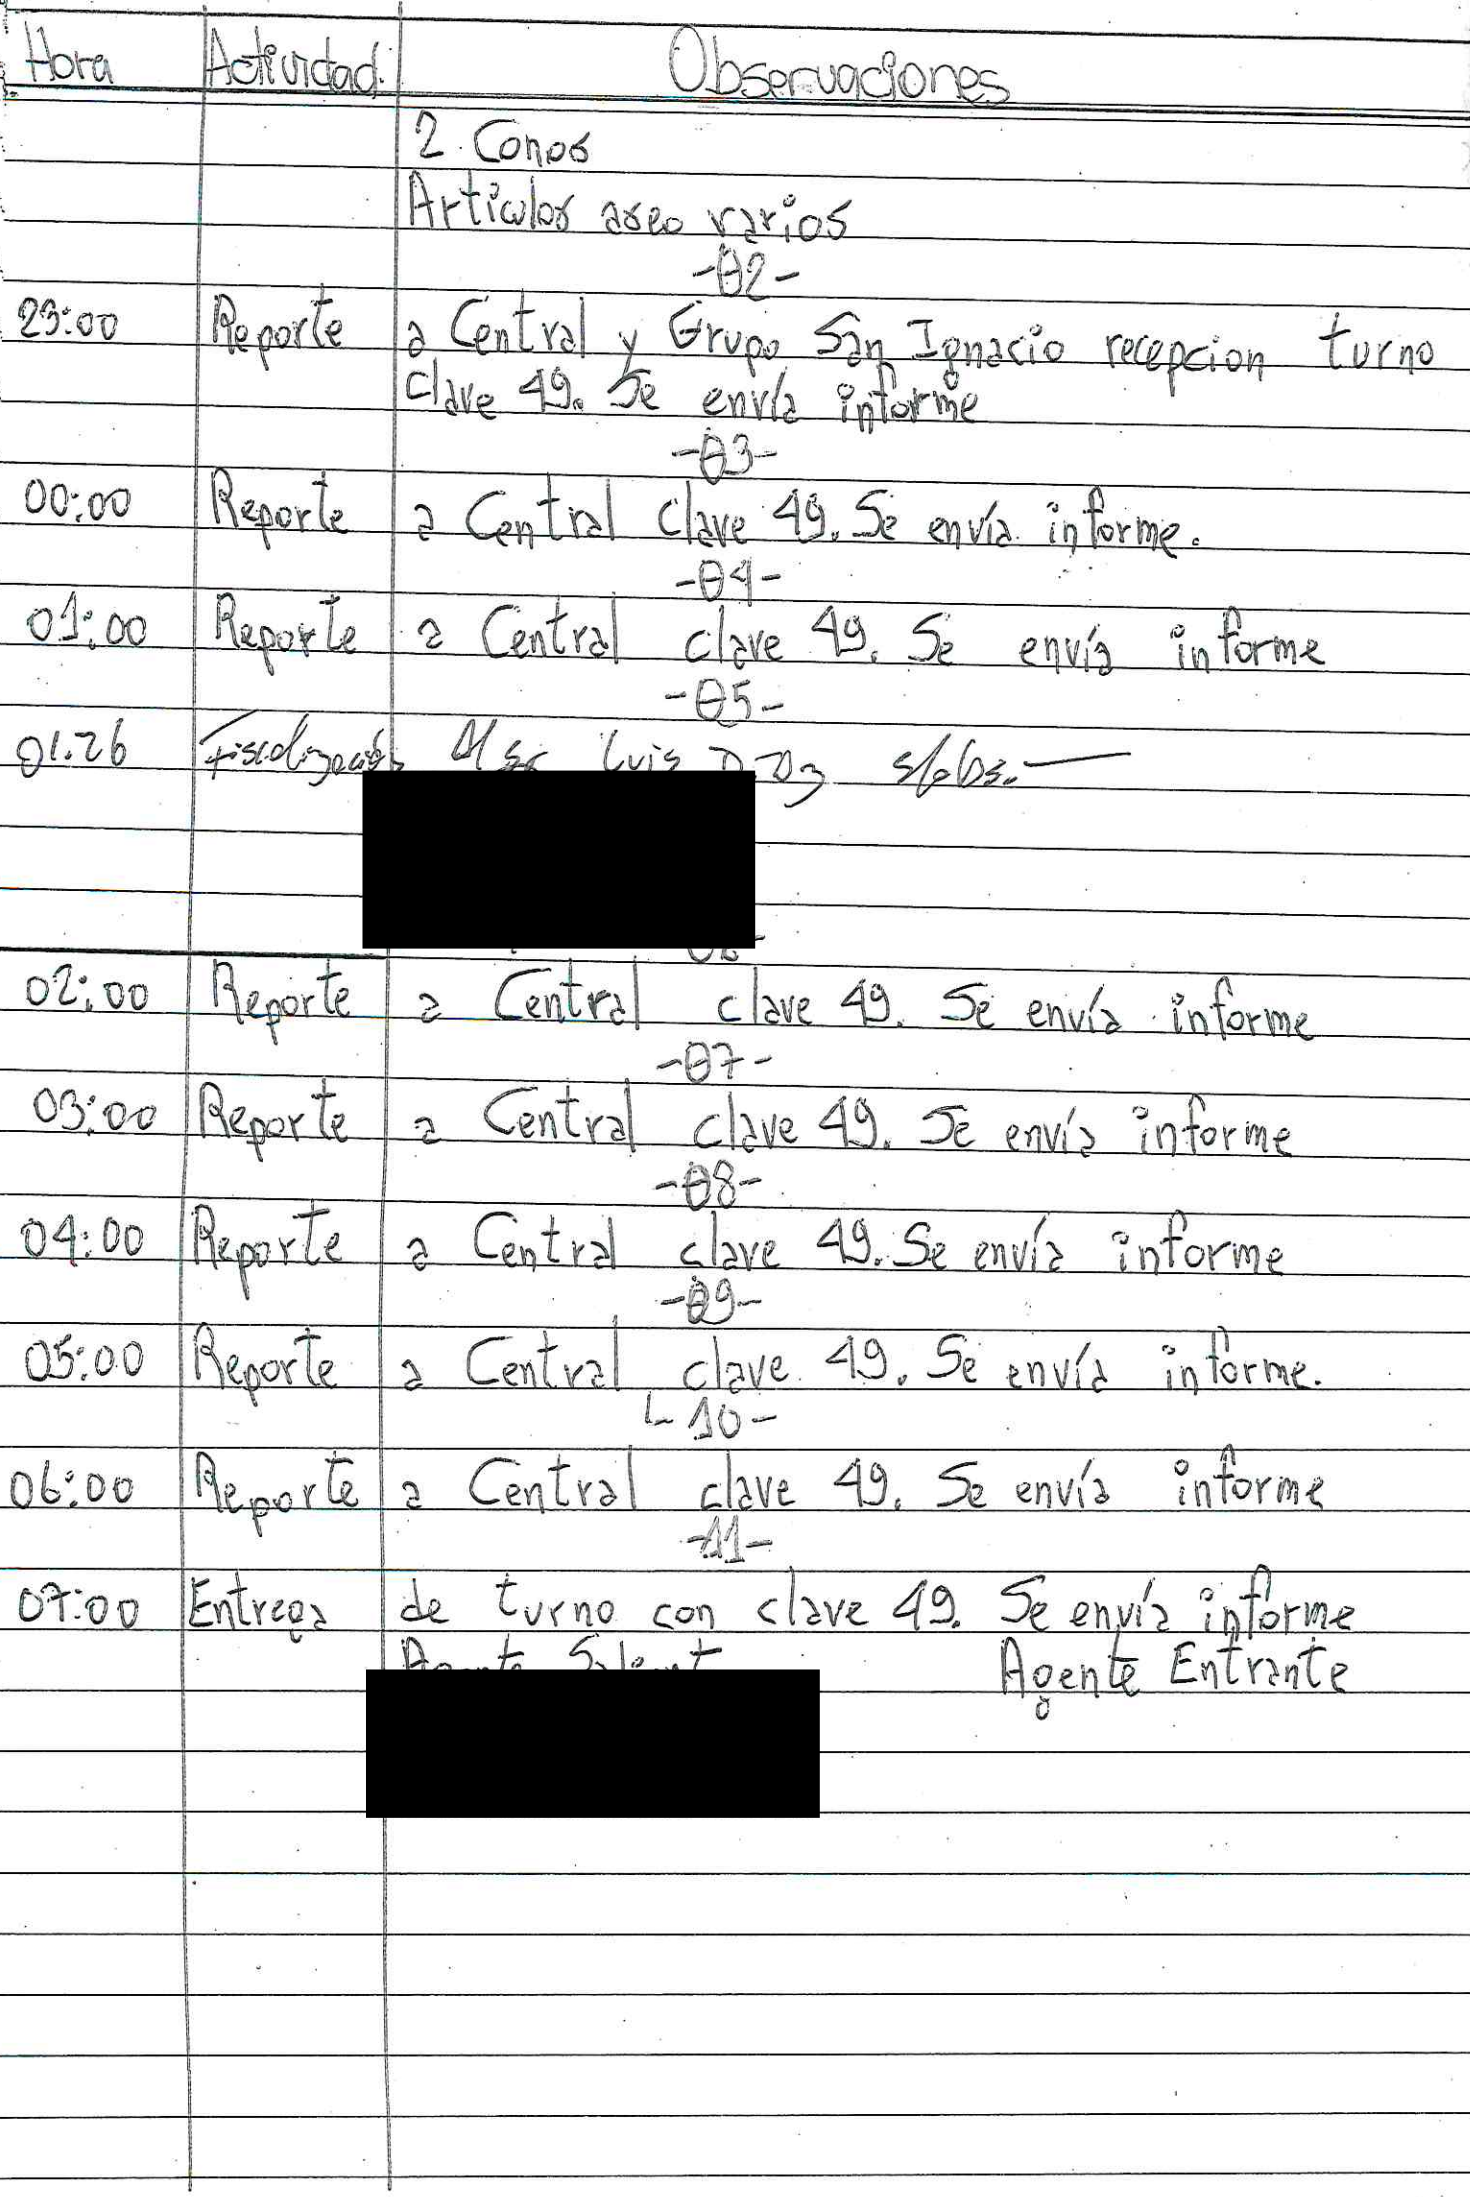 Hora Actividad Observaciones
2 Conos
Articulos aseo varios
-02-
23:00 Reporte a Central y Grupo San Ignacio recepcion turno
clave 49. Se envía informe
-03-
00:00 Reporte a Central clave 49. Se envía informe.
-04-
01:00 Reporte a Central clave 49. Se envía informe
-05-
01:26 Fiscalización Al Sr. Luis s/obs.
02:00 Reporte a Central clave 49. Se envía informe
-07-
03:00 Reporte a Central clave 49. Se envía informe
-08-
04:00 Reporte a Central clave 49. Se envía informe
-09-
05:00 Reporte a Central clave 49. Se envía informe.
-10-
06:00 Reporte a Central clave 49. Se envía informe
-11-
07:00 Entrega de turno con clave 49. Se envía informe
Agente Salient Agente Entrante